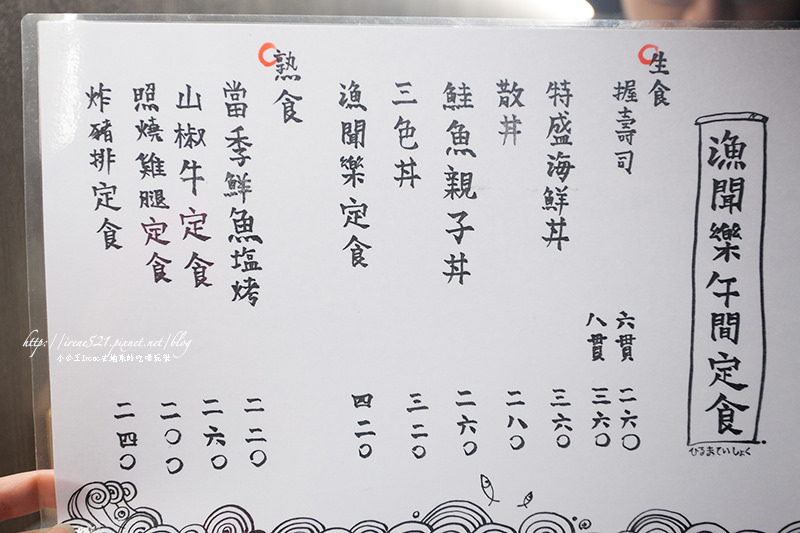 漁聞樂午間定食
ひるまていしょく
生食
握壽司 六貫 二六〇
八貫 三六〇
特盛海鮮丼 三六〇
散丼 二八〇
鮭魚親子丼 二六〇
三色丼 三二〇
漁聞樂定食 四二〇
熟食
當季鮮魚塩烤 二二〇
山椒牛定食 二六〇
照燒雞腿定食 二〇〇
炸豬排定食 二四〇
http://irene521.pixnet.net/blog
小公主Irene去她來的吃喝玩樂